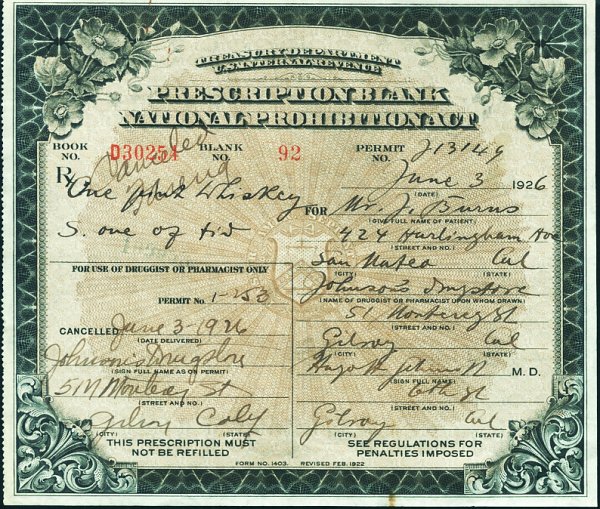 TREASURY DEPARTMENT
U.S. INTERNAL REVENUE
PRESCRIPTION BLANK
NATIONAL PROHIBITION ACT
BOOK NO. D30254 BLANK NO. 92 PERMIT NO. J13149
Canceled
Rx
One pint Whiskey
S. one oz tid
June 3 1926
(DATE)
FOR Mr. J. Burns
(GIVE FULL NAME OF PATIENT)
424 Hurlingham Ave
(STREET AND NO.)
San Mateo Cal
(CITY) (STATE)
Johnson's Drugstore
(NAME OF DRUGGIST OR PHARMACIST UPON WHOM DRAWN)
51 Monterey St
(STREET AND NO.)
Gilroy Cal
(CITY) (STATE)
M.D.
(SIGN FULL NAME)
6th St
(STREET AND NO.)
Gilroy Cal
(CITY) (STATE)
SEE REGULATIONS FOR
PENALTIES IMPOSED
FOR USE OF DRUGGIST OR PHARMACIST ONLY
PERMIT NO. 1-253
CANCELLED June 3-1926
(DATE DELIVERED)
Johnson's Drug Store
(SIGN FULL NAME AS ON PERMIT)
51 N Monterey St
(STREET AND NO.)
Gilroy Calif
(CITY) (STATE)
THIS PRESCRIPTION MUST
NOT BE REFILLED
FORM NO. 1403. REVISED FEB. 1922